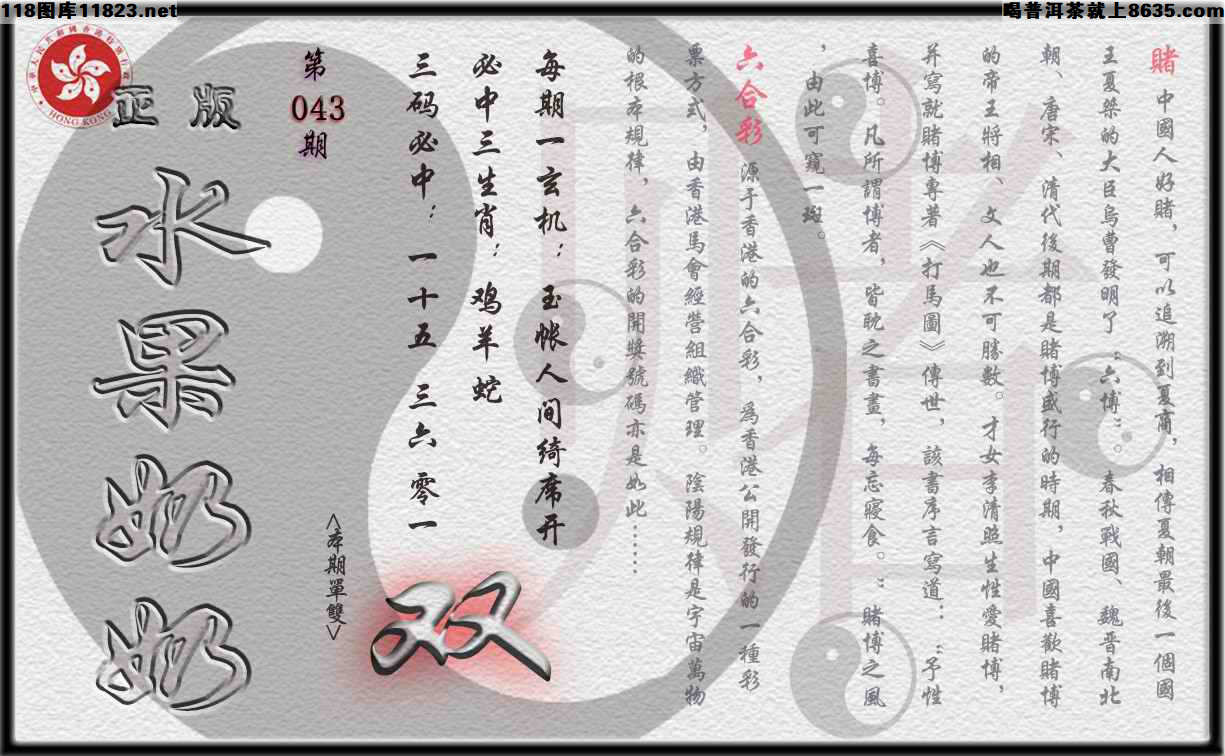 118图库11823.net
喝普洱茶就上8635.com
賭 中國人好賭，可以追溯到夏商，相傳夏朝最後一個國
王夏桀的大臣烏曹發明了“六博”。春秋戰國、魏晋南北
朝、唐宋、清代後期都是賭博盛行的時期，中國喜歡賭博
的帝王將相、文人也不可勝數。才女李清照生性愛賭博，
并寫就賭博專著《打馬圖》傳世，該書序言寫道：：“予性
喜博。凡所謂博者，皆耽之書畫，每忘寢食。”賭博之風
，由此可窺一斑。
六合彩 源于香港的六合彩，爲香港公開發行的一種彩
票方式，由香港馬會經營組織管理。陰陽規律是宇宙萬物
的根本規律，六合彩的開獎號碼亦是如此······
每期一玄机：玉帐人间绮席开
必中三生肖：鸡羊蛇
三码必中：一十五 三六 零一
<本期單雙>
双
第
043
期
正版
水果奶奶
中華人民共和國香港特別行政區
HONG KONG